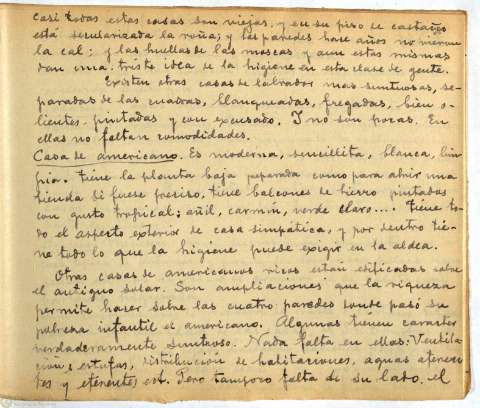 casi todas estas casas son viejas, y en su piso de castaño
está secularizada la roña; y las paredes hace años no vieron
la cal: y las huellas de las moscas y aun estas mismas
dan una triste idea de la higiene en esta clase de gente.
Existen otras casas de labrador mas suntuosas, se-
paradas de las cuadras, blanqueadas, fregadas, bien o-
lientes, pintadas y con excusado. Y no son pocas. En
ellas no faltan comodidades.
Casa de americano. Es moderna, sencillita, blanca, lim-
pia. Tiene la planta baja preparada como para abrir una
tienda si fuese preciso, tiene balcones de hierro pintados
con gusto tropical; añil, carmín, verde claro.... Tiene to-
do el aspecto exterior de casa simpática, y por dentro tie-
ne todo lo que la higiene puede exigir en la aldea.
Otras casas de americanos ricos están edificadas sobre
el antiguo solar. Son ampliaciones que la riqueza
permite hacer sobre las cuatro paredes donde pasó su
pobreza infantil el americano. Algunas tienen caracter
verdaderamente suntuoso. Nada falta en ellas: Ventila-
cion, estufas, distribución de habitaciones, aguas aferen-
tes y eferentes ect. Pero tampoco falta a su lado, el